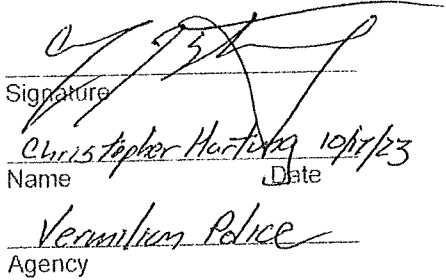 Signature
Christopher Hartung 10/17/23
Name Date
Vermilion Police
Agency